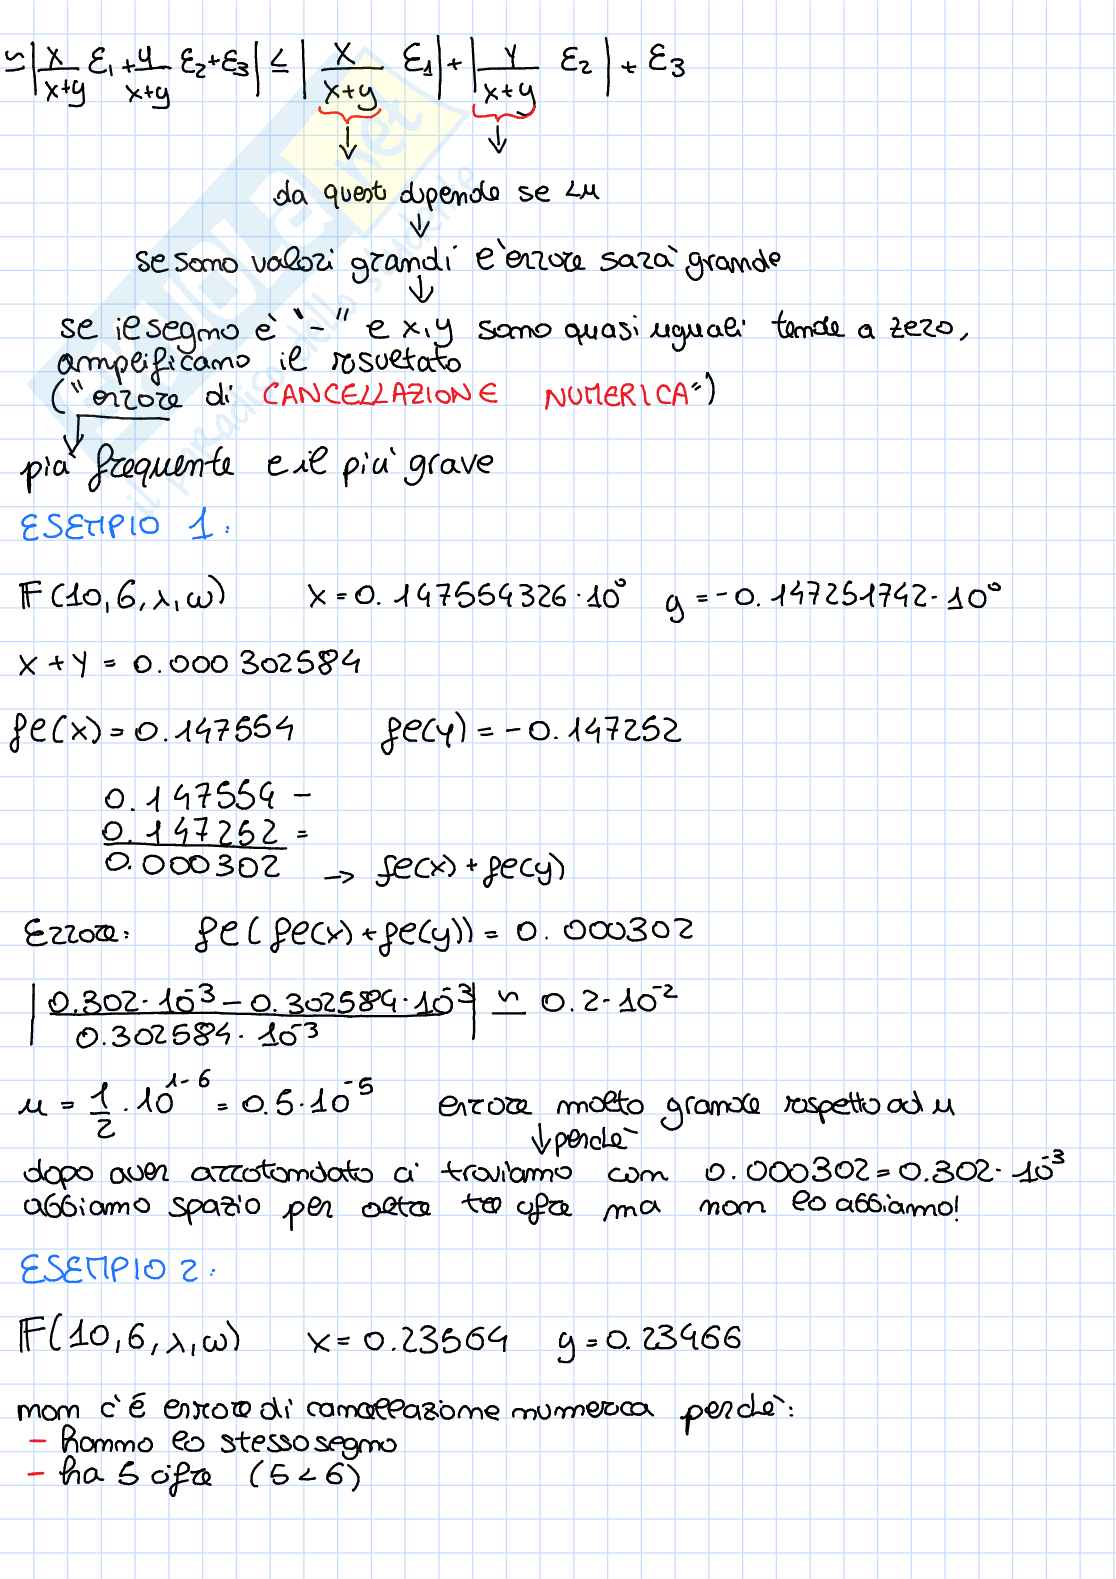 ≃ | x/(x+y) ε1 + y/(x+y) ε2 + ε3 | ≤ | x/(x+y) ε1 | + | y/(x+y) ε2 | + ε3
da questi dipende se < u
se sono valori grandi l'errore sarà grande
se il segno è "-" e x,y sono quasi uguali tende a zero,
amplificano il risultato
("errore di CANCELLAZIONE NUMERICA")
più frequente e il più grave
ESEMPIO 1:
F(10,6,λ,ω) x = 0.147554326·10^0 y = -0.147251742·10^0
x + y = 0.000302584
fl(x) = 0.147554 fl(y) = -0.147252
0.147554 -
0.147252 =
0.000302 → fl(x) + fl(y)
Errore: fl(fl(x) + fl(y)) = 0.000302
| (0.302·10^-3 - 0.302584·10^-3) / 0.302584·10^-3 | ≃ 0.2·10^-2
u = 1/2 · 10^1-6 = 0.5·10^-5 errore molto grande rispetto ad u
↓ perchè
dopo aver arrotondato ci troviamo con 0.000302 = 0.302·10^-3
abbiamo spazio per altre tre cifre ma non lo abbiamo!
ESEMPIO 2:
F(10,6,λ,ω) x = 0.23564 y = 0.23466
non c'è errore di cancellazione numerica perchè:
- hanno lo stesso segno
- ha 5 cifre (5 < 6)